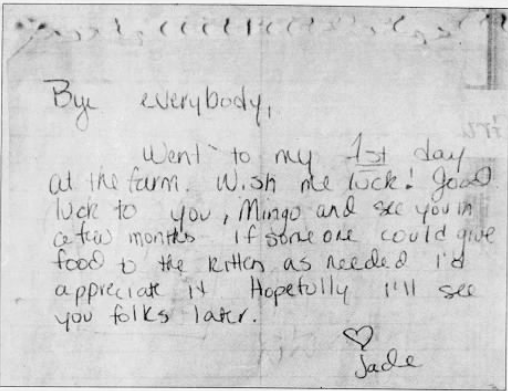 Bye everybody,
Went to my 1st day
at the farm. Wish me luck! Good
luck to you, Mingo and see you in
a few months if someone could give
food to the kitten as needed I'd
appreciate it Hopefully I'll see
you folks later.
♡
Jade